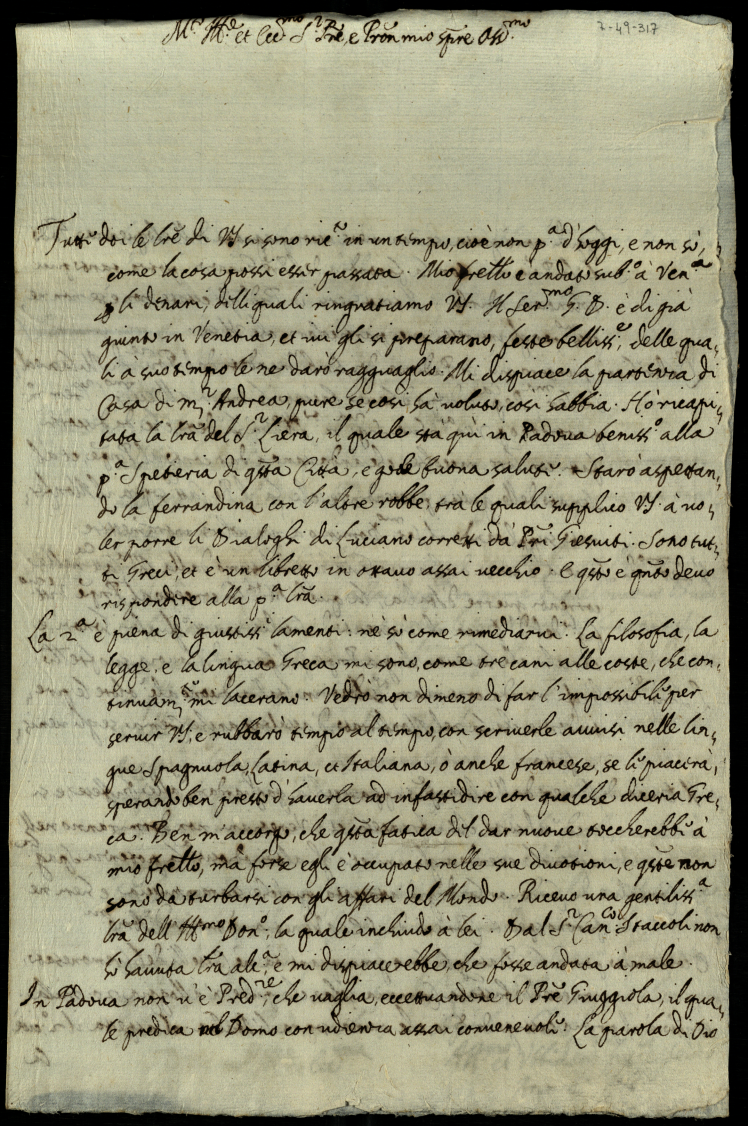 M.to Ill.e et Ecc.mo S.r Pre, e Pron mio sempre Oss.mo
7-49-317
Tutti doi le lre di VS si sono ric.te in un tempo, cioè non p.a d'hoggi, e non sò,
come la cosa possi esser passata. Mio frello è andato sub.o à Ven.a
p li denari, delli quali ringratiamo VS. Il Ser.mo G. D. è di già
giunto in Venetia, et ivi gli si preparano, feste belliss.e, delle qua-
li à suo tempo le ne darò ragguaglio. Mi dispiace la partenza di
Casa di m.r Andrea, pure se così hà voluto, così habbia. Hò ricapi-
tata la lra del S.r Liera, il quale stà quì in Padova beniss.o alla
p.a Speteria di qsta Città, e gode buona salute. Starò aspettan-
do la ferrandina con l'altre robbe, trà le quali supplico VS à vo-
ler porre li Dialoghi di Luciano corretti dà Pri Giesuiti. Sono tut-
ti Greci, et è un libretto in ottavo assai vecchio. E qsto è qnto devo
rispondere alla p.a lra.
La 2.a è piena di giustiss.i lamenti: nè sò come rimediarvi. La filosofia, la
legge, e la lingua Greca mi sono, come tre cani alle coste, che con-
tinuam.te mi lacerano. Vedrò non dimeno di far l'impossibile per
servir VS, e rubbarò tempo al tempo, con scriverle avvisi nelle lin-
gue Spagnuola, Latina, et Italiana, ò anche francese, se li piacerà,
sperando ben presto d'haverla ad infastidire con qualche diceria Gre-
ca. Ben m'accorgo, che qsta fatica del dar nuove toccherebbe à
mio frello, mà forse egli è occupato nelle sue divotioni, e qste non
sono dà turbarsi con gli affari del Mondo. Ricevo una gentiliss.a
lra dell'Ill.mo Don.o, la quale inchiudo à lei. Dal S.r Can.co Staccoli non
hò havuta lra alc.a, e mi dispiacerebbe, che fosse andata à male.
In Padova non v'è Pred.re, che vaglia, eccettuandone il Pre Giuggiola, il qua-
le predica nel Domo con udienza assai convenevole. La parola di Dio